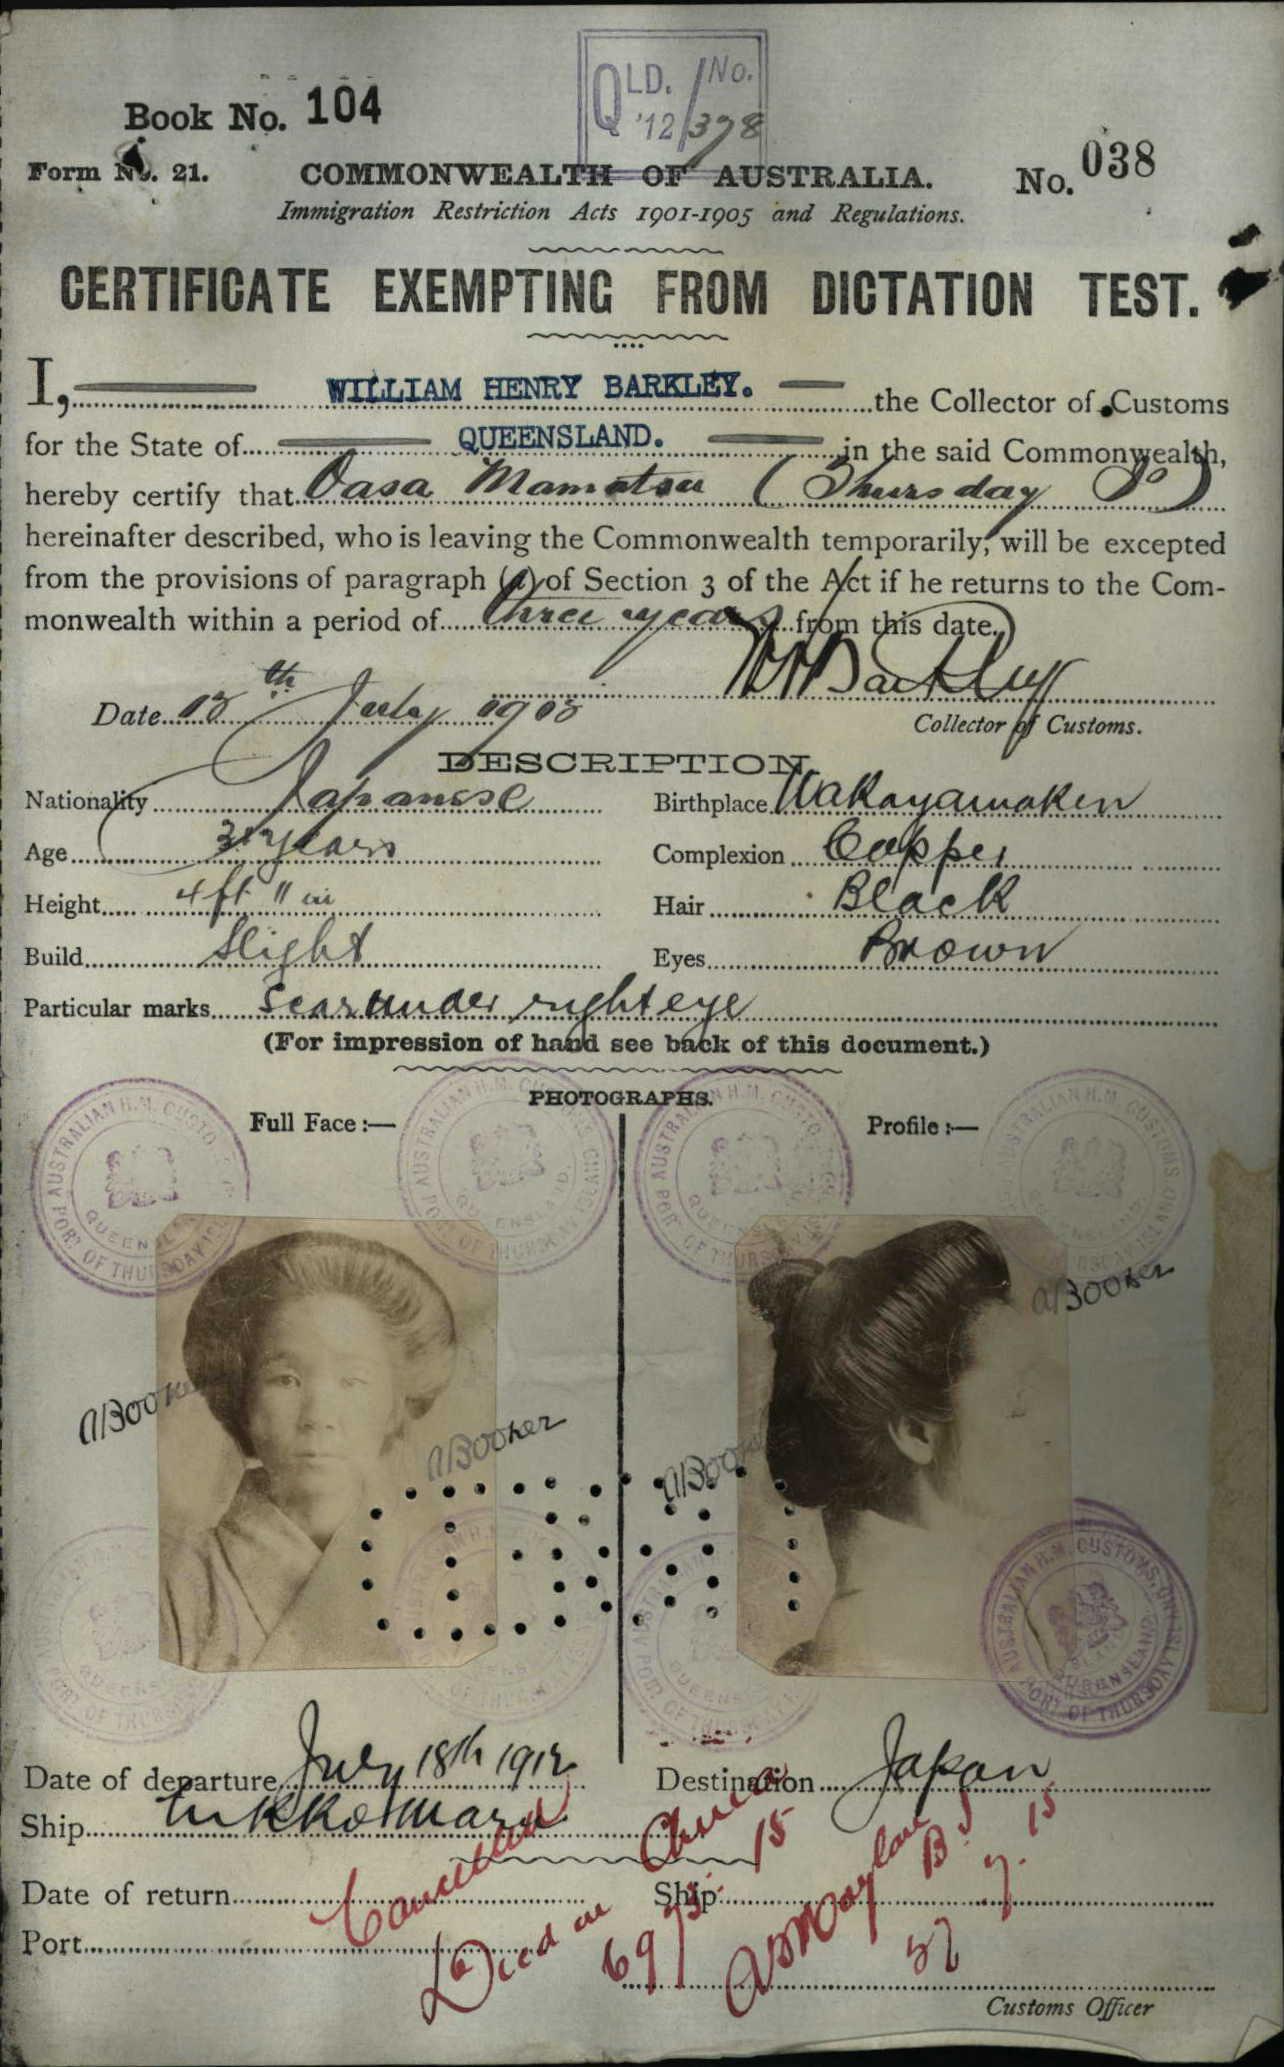 QLD. No.
'12/378
Book No. 104
Form No. 21. COMMONWEALTH OF AUSTRALIA. No. 038
Immigration Restriction Acts 1901-1905 and Regulations.
CERTIFICATE EXEMPTING FROM DICTATION TEST.
I, WILLIAM HENRY BARKLEY. the Collector of Customs
for the State of QUEENSLAND. in the said Commonwealth,
hereby certify that Oasa Mamatsu (Thursday Is)
hereinafter described, who is leaving the Commonwealth temporarily, will be excepted
from the provisions of paragraph (a) of Section 3 of the Act if he returns to the Com-
monwealth within a period of three years from this date.
WHBarkley
Date 13th July 1908 Collector of Customs.
DESCRIPTION.
Nationality Japanese Birthplace Wakayamaken
Age 31 years Complexion Copper
Height 4 ft 11 in Hair Black
Build Slight Eyes Brown
Particular marks Scar under right eye
(For impression of hand see back of this document.)
PHOTOGRAPHS.
Full Face :— Profile :—
AUSTRALIAN H.M. CUSTOMS
QUEENSLAND
PORT OF THURSDAY ISLAND
ABooker
ABooker
ABooker
ABooker
AUSTRALIAN H.M. CUSTOMS, QUEENSLAND
PORT OF THURSDAY ISLAND
Date of departure July 18th 1912 Destination Japan
Ship Nikko Maru
Date of return Ship
Port
Cancelled
Died in
15
Customs Officer